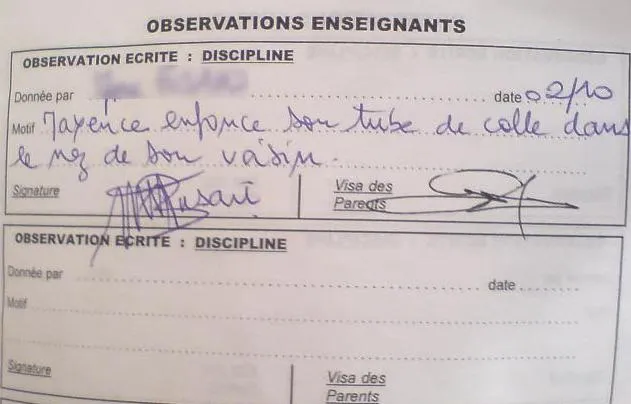 OBSERVATIONS ENSEIGNANTS
OBSERVATION ECRITE : DISCIPLINE
Donnée par date 02/10
Motif Maxence enfonce son tube de colle dans
le nez de son voisin.
Signature Visa des
Parents
OBSERVATION ECRITE : DISCIPLINE
Donnée par date
Motif
Signature Visa des
Parents